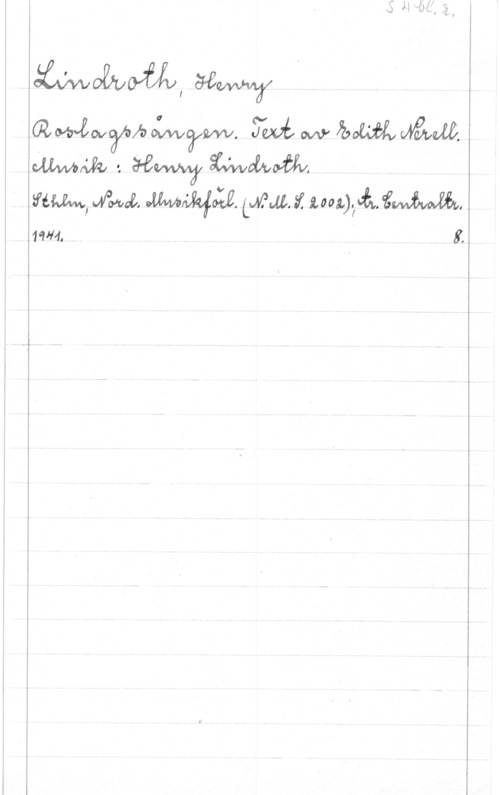 S 4:bl. 2.
Lindroth, Henry
Roslagssången. Text av Edith Nérell.
Musik: Henry Lindroth.
Sthlm, Nord. Musikförl. (N. M. S. 2002); tr. Centraltr.
1941. 8.